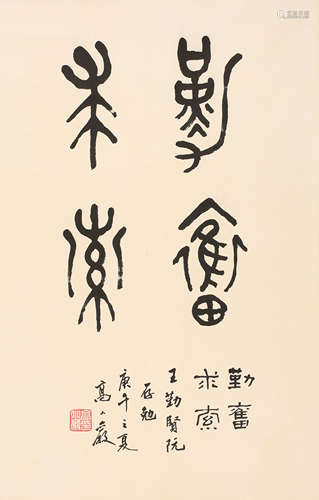 勤奮
求索
勤奮
求索
王勤賢阮
存勉
庚午之夏
高小嚴